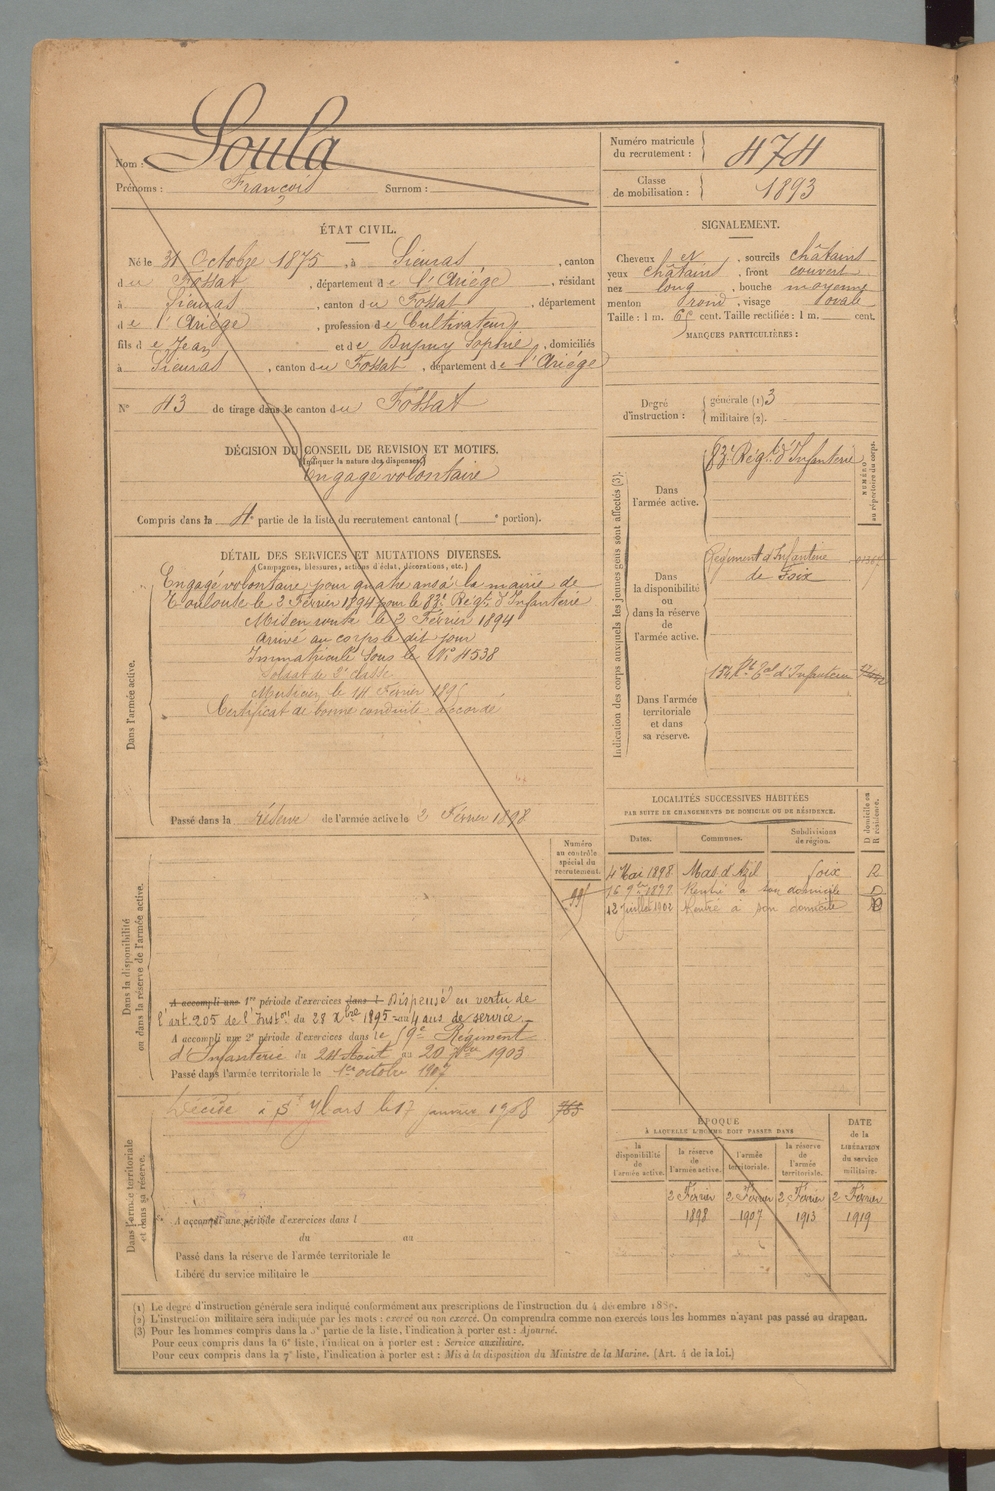 Nom : Soula
Prénoms : François Surnom :
Numéro matricule du recrutement : 474
Classe de mobilisation : 1893
ÉTAT CIVIL.
Né le 31 Octobre 1875, à Sieuras, canton
du Fossat, département de l'Ariége, résidant
à Sieuras, canton du Fossat, département
de l'Ariége, profession de Cultivateur
fils de Jean et de Dupuy Sophie, domiciliés
à Sieuras, canton du Fossat, département de l'Ariége
N° 43 de tirage dans le canton du Fossat
SIGNALEMENT.
Cheveux et, sourcils châtains
yeux châtains, front couvert
nez long, bouche moyenne
menton rond, visage ovale
Taille : 1 m. 65 cent. Taille rectifiée : 1 m. cent.
MARQUES PARTICULIÈRES :
Degré d'instruction : générale (1) 3
militaire (2).
DÉCISION DU CONSEIL DE REVISION ET MOTIFS.
(Indiquer la nature des dispenses.)
Engagé volontaire
Compris dans la 4e partie de la liste du recrutement cantonal ( e portion).
DÉTAIL DES SERVICES ET MUTATIONS DIVERSES.
(Campagnes, blessures, actions d'éclat, décorations, etc.)
Dans l'armée active.
Engagé volontaire pour quatre ans à la mairie de
Toulouse le 2 Février 1894 pour le 83e Régt d'Infanterie
Mis en route le 2 Février 1894
Arrivé au corps le dit jour
Immatriculé sous le N° 4538
Soldat de 2e classe
Musicien le 14 Février 1895
Certificat de bonne conduite accordé
Passé dans la réserve de l'armée active le 2 Février 1898
Indication des corps auxquels les jeunes gens sont affectés (3).
NUMÉRO au répertoire du corps.
Dans l'armée active.
83e Régt d'Infanterie
Dans la disponibilité ou dans la réserve de l'armée active.
Régiment d'Infanterie
de Foix
Dans l'armée territoriale et dans sa réserve.
134e Rt Tal d'Infanterie
LOCALITÉS SUCCESSIVES HABITÉES
PAR SUITE DE CHANGEMENTS DE DOMICILE OU DE RÉSIDENCE.
Dates. Communes. Subdivisions de région. D domicile ou R résidence.
4 Mai 1898 Mas d'Azil Foix R
16 9bre 1899 Rentré à son domicile D
12 Juillet 1902 Rentré à son domicile D
Numéro au contrôle spécial du recrutement.
Dans la disponibilité ou dans la réserve de l'armée active.
A accompli une 1re période d'exercices dans l Dispensé en vertu de
l'art. 205 de l'Inston du 28 Xbre 1895 4 ans de service
A accompli une 2e période d'exercices dans le 59e Régiment
d'Infanterie du 24 Août au 20 7bre 1903
Passé dans l'armée territoriale le 1er octobre 1907
Dans l'armée territoriale et dans sa réserve.
Décédé à St Ybars le 17 janvier 1908
A accompli une période d'exercices dans l
du au
Passé dans la réserve de l'armée territoriale le
Libéré du service militaire le
ÉPOQUE
À LAQUELLE L'HOMME DOIT PASSER DANS
DATE de la LIBÉRATION du service militaire.
la disponibilité de l'armée active. la réserve de l'armée active. l'armée territoriale. la réserve de l'armée territoriale.
2 Février 2 Février 2 Février 2 Février
1898 1907 1913 1919
(1) Le degré d'instruction générale sera indiqué conformément aux prescriptions de l'instruction du 4 décembre 1889.
(2) L'instruction militaire sera indiquée par les mots : exercé ou non exercé. On comprendra comme non exercés tous les hommes n'ayant pas passé au drapeau.
(3) Pour les hommes compris dans la 5e partie de la liste, l'indication à porter est : Ajourné.
Pour ceux compris dans la 6e liste, l'indication à porter est : Service auxiliaire.
Pour ceux compris dans la 7e liste, l'indication à porter est : Mis à la disposition du Ministre de la Marine. (Art. 4 de la loi.)